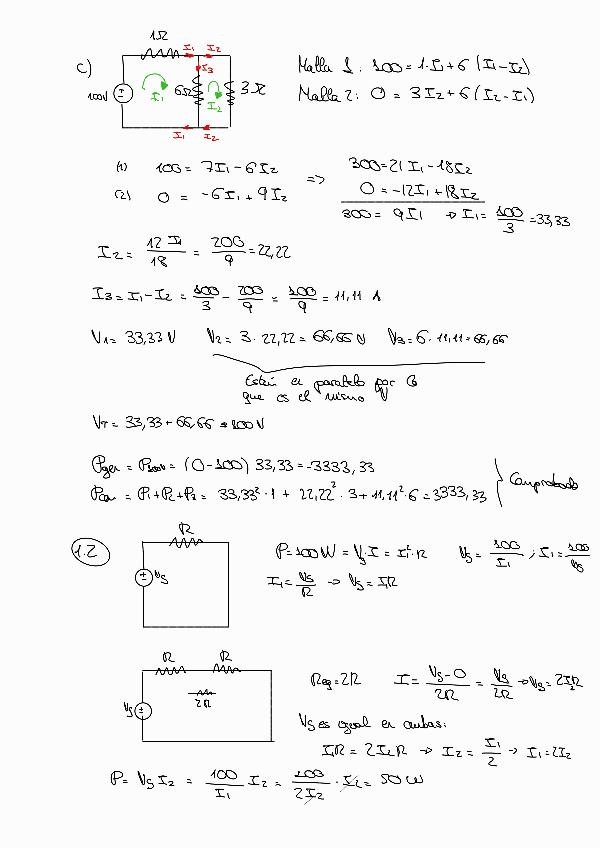 c)
1Ω I₁ I₂
I₃
100V ± I₁ 6Ω I₂ 3Ω
I₁ I₂
Malla 1: 100 = 1·I₁+6 (I₁-I₂)
Malla 2: 0 = 3I₂+6(I₂-I₁)
(1) 100 = 7I₁-6I₂ => 300=21I₁-18I₂
(2) 0 = -6I₁+9I₂ 0=-12I₁+18I₂
300 = 9I₁ → I₁= 100/3 =33,33
I₂= 12 I₁/18 = 200/9 =22,22
I₃=I₁-I₂ = 100/3 - 200/9 = 100/9 = 11,11 A
V₁= 33,33 V V₂= 3 · 22,22 = 66,66 V V₃= 6 · 11,11=66,66
Están en paralelo por lo
que es el mismo V
V_T = 33,33+66,66 = 100V
Pgen = P₁₀₀ᵥ = (0-100) 33,33 =-3333,33
Pcon = P₁+P₂+P₃ = 33,33²·1 + 22,22²·3+11,11²·6=3333,33
Comprobado
1.2
R
± Vs
P=100W = Vs·I = I²·R Vs = 100/I₁ ; I₁ = 100/Vs
I₁= Vs/R → Vs = I₁R
R R
2R
Vs ±
Req=2R I = Vs-0/2R = Vs/2R → Vs = 2I₂R
Vs es igual en ambas:
I₁R = 2I₂R → I₂ = I₁/2 → I₁=2I₂
P= Vs I₂ = 100/I₁ I₂ = 100/2I₂ · I₂ = 50 W